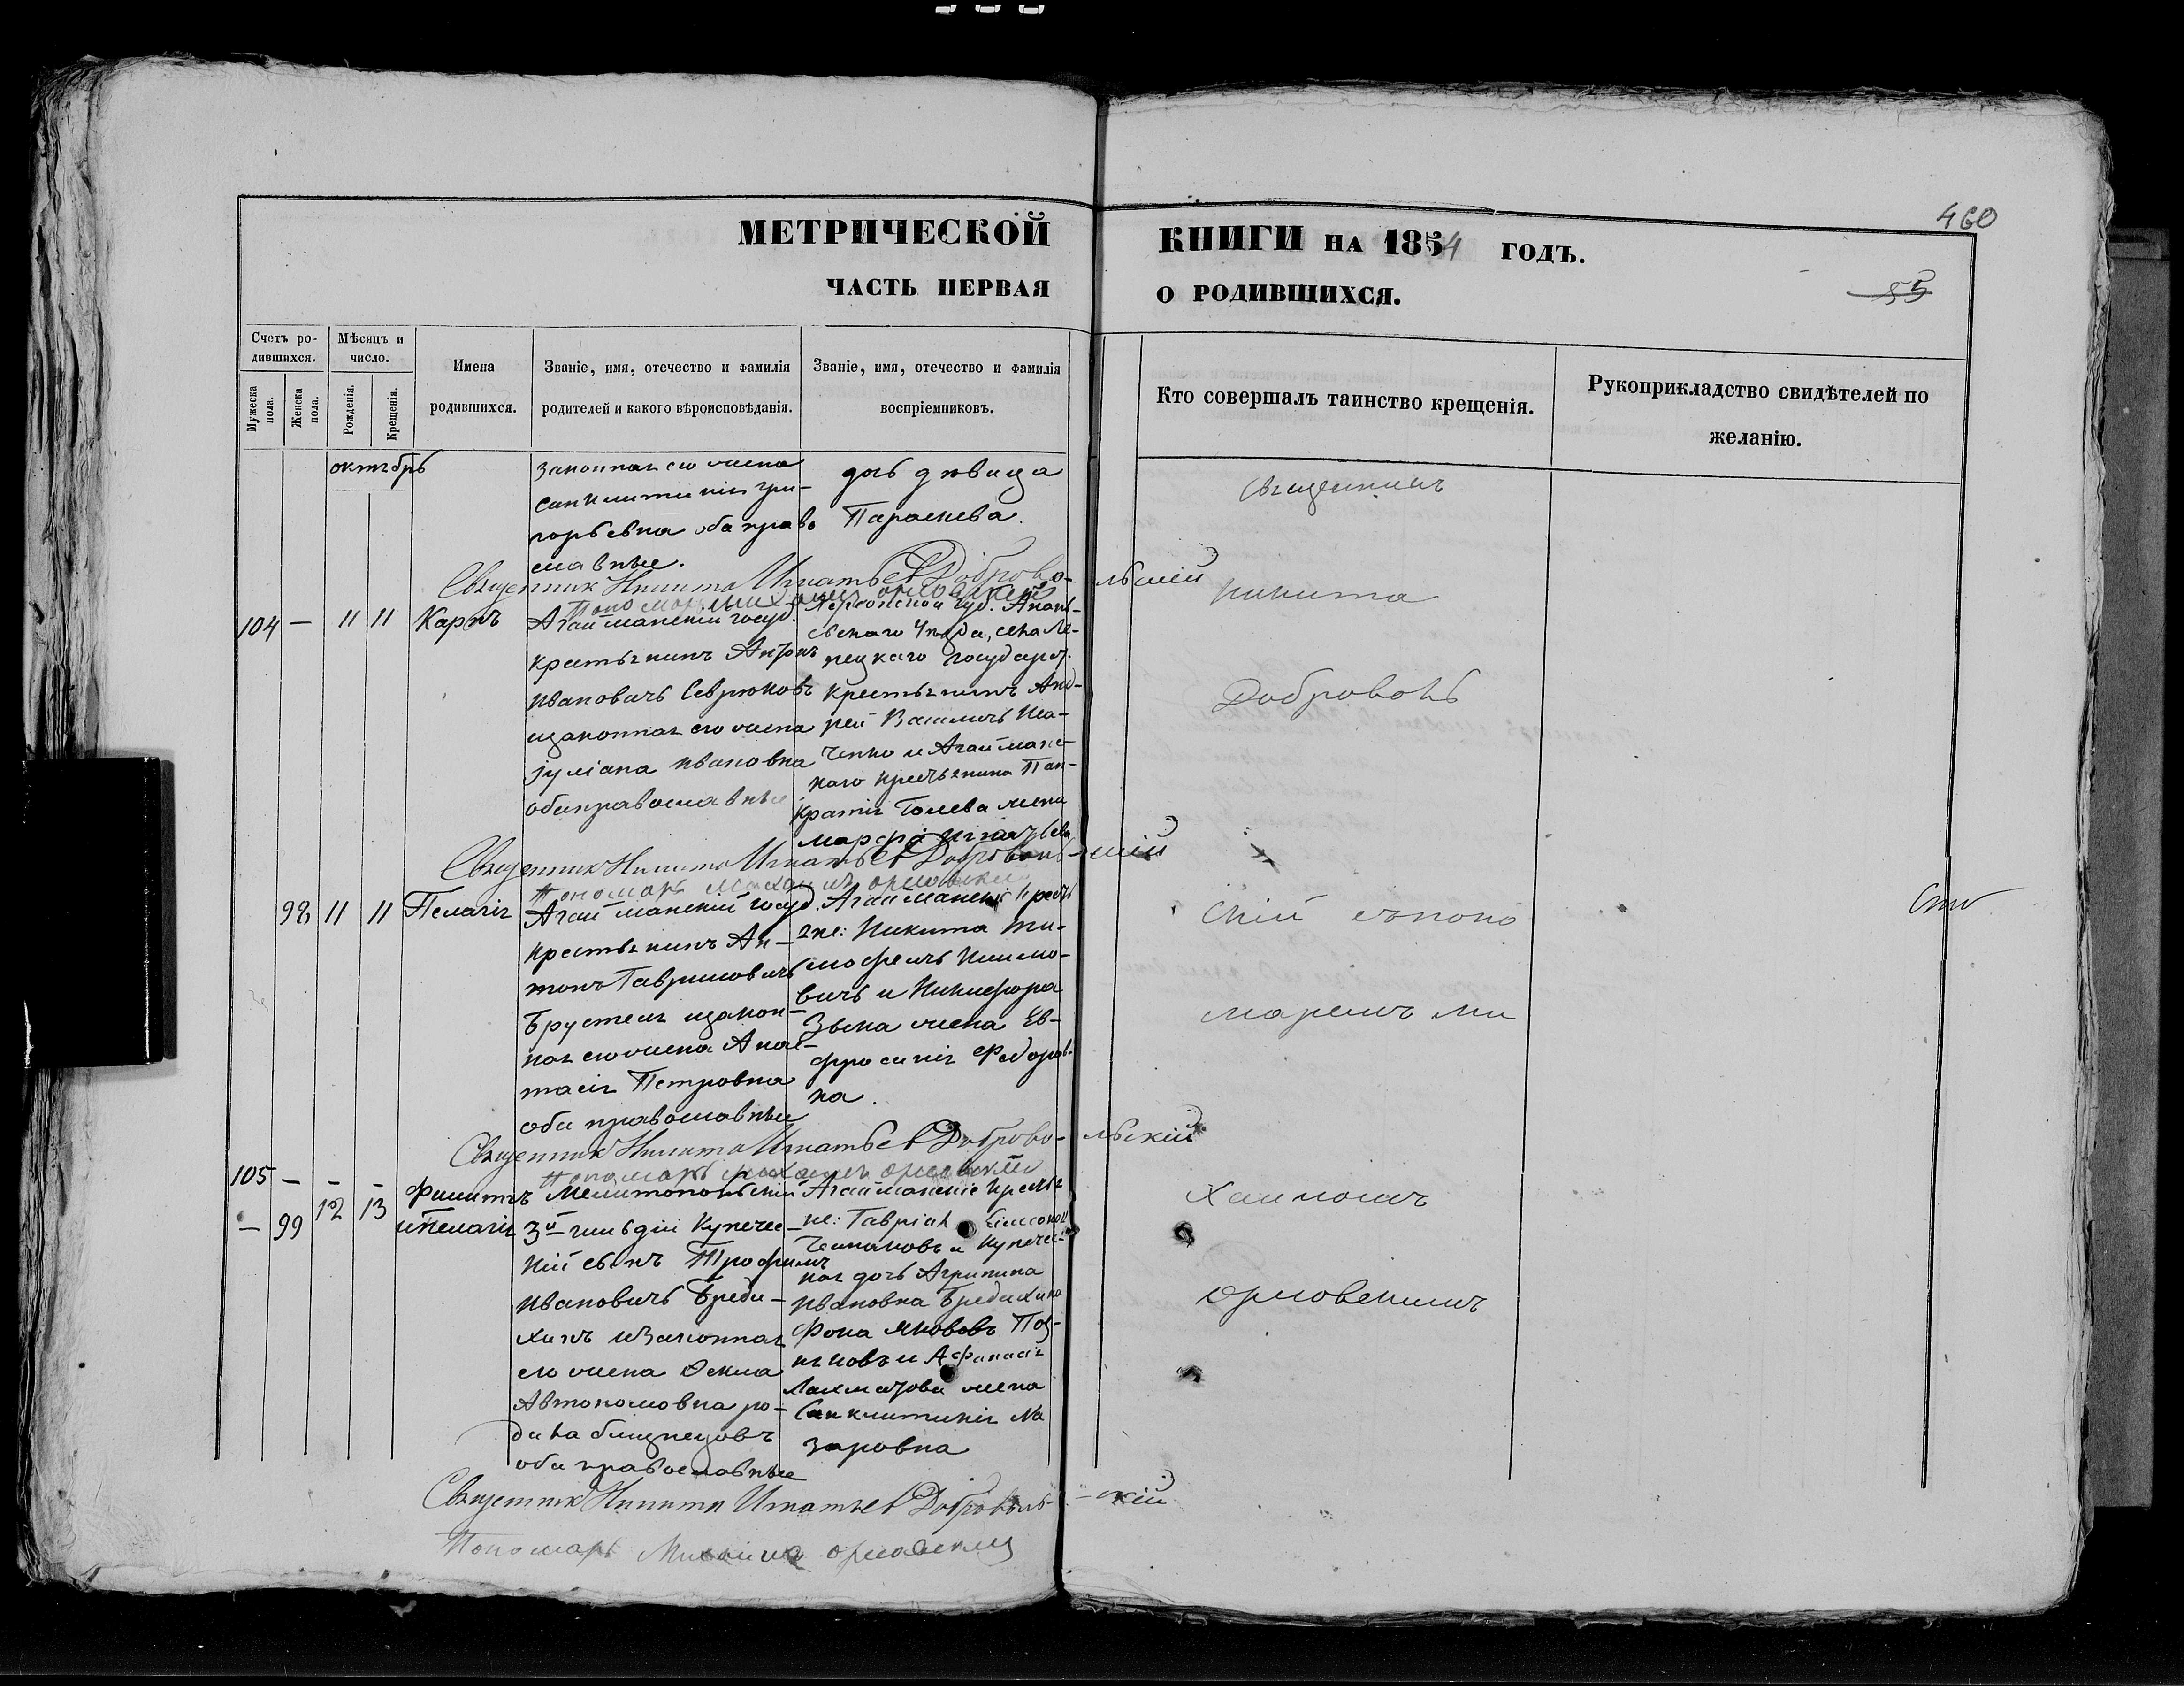 МЕТРИЧЕСКОЙ КНИГИ НА 1854 ГОДЪ.
460
ЧАСТЬ ПЕРВАЯ О РОДИВШИХСЯ.
55
Счетъ ро-
дившихся.
Мужеска пола.
Женска пола.
Мѣсяцъ и
число.
Рожденія.
Крещенія.
Имена
родившихся.
Званіе, имя, отечество и фамилія
родителей и какого вѣроисповѣданія.
Званіе, имя, отечество и фамилія
воспріемниковъ.
Кто совершалъ таинство крещенія.
Рукоприкладство свидѣтелей по
желанію.
октябрь
законная его жена
Синклитикія Гри-
горьевна оба право
славные.
дочь дѣвица
Параскева.
Священникъ Никита Игнатьев Доброво- льскій
Пономарь Михаилъ Орловскій
104 — 11 11 Карпъ
Агайманскій госуд.
крестьянинъ Антонъ
Ивановичъ Севрюковъ
изаконная его жена
Іуліана Ивановна
оба православные
Херсонской губ. Анань-
евскаго уѣзда, села
государст.
крестьянинъ Анд-
рей
ченко и Агайманс-
каго крестьянина Пан-
кратія жена
Марфа Игнатьева
Священникъ Никита Игнатьев Добровольскій
Пономарь Михаилъ Орловскій
98 11 11 Пелагія
Агайманскій госуд.
крестьянинъ Ан-
тонъ Гавриловичъ
изакон-
ная его жена Анас-
тасія Петровна
оба православные
Агайманскіе крестья
не: Никита Ти-
мофеичъ
вичъ и Никифора
жена Ев-
фросинія Федоров-
на.
Священникъ Никита Игнатьев Доброво- льскій
Пономарь Михаилъ Орловскій
105 — — — Филиппъ
— 99 12 13 иПелагія
Мелитопольскій
3й гильдіи Купечес-
кій сынъ Трофимъ
Ивановичъ Бреди-
хинъ изаконная
его жена Ѳекла
Автономовна ро-
дила близнецовъ
оба православные
Агайманскіе крестья
не:
и Купечес-
кая дочь Агрипина
Ивановна Бредихина
Фока Яковъ
и Афанасія
жена
Синклитикія На
заровна
Священникъ Никита Игнатьев Доброволь- скій
Пономарь Михаилъ Орловскій
Священникъ
Никита
Доброволь
скій съпоно
маремъ Ми
хаиломъ
Орловскимъ